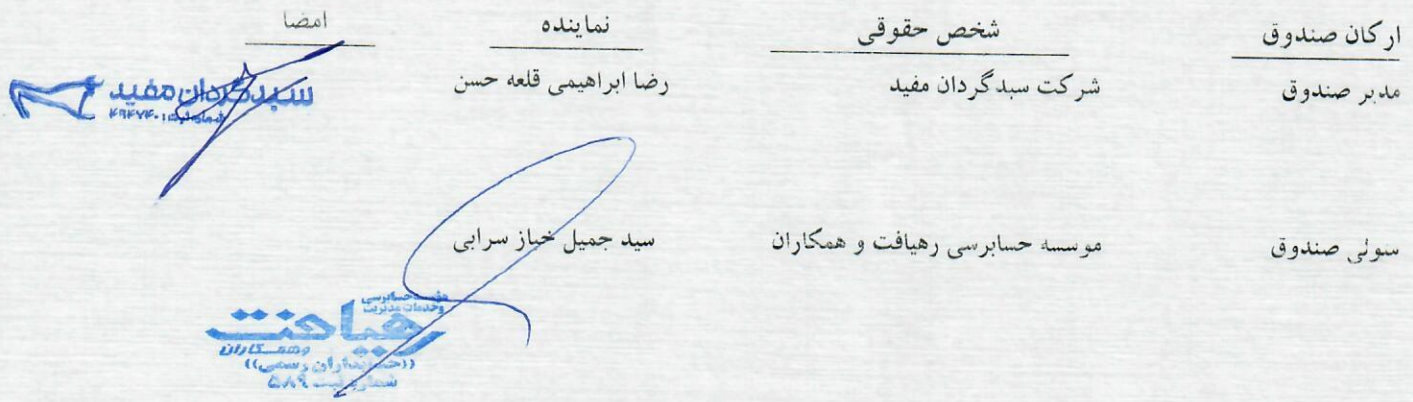 ارکان صندوق شخص حقوقی نماینده امضا
مدیر صندوق شرکت سبدگردان مفید رضا ابراهیمی قلعه حسن
سبدگردان مفید
شماره ثبت: ۴۹۴۷۴۰
متولی صندوق موسسه حسابرسی رهیافت و همکاران سید جمیل خباز سرابی
موسسه حسابرسی
وخدمات مدیریت
رهیافت
وهمکاران
((حسابداران رسمی))
شماره ثبت ۵۸۹